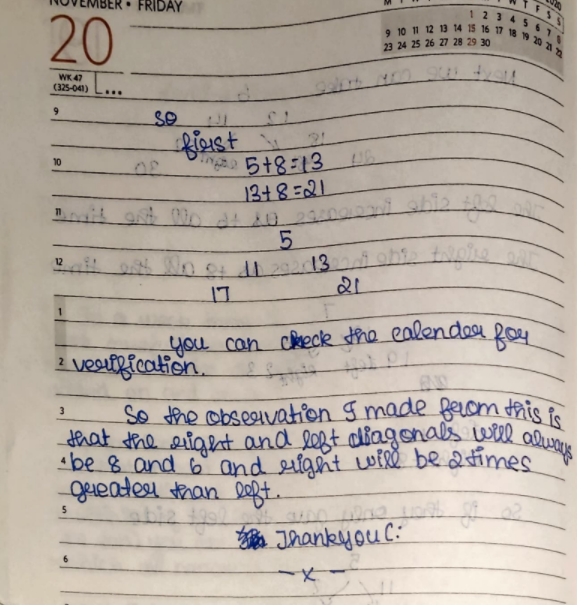 NOVEMBER • FRIDAY
20
WK 47
(325-041)
2020
M T W T F S S
1
2 3 4 5 6 7 8
9 10 11 12 13 14 15
16 17 18 19 20 21 22
23 24 25 26 27 28 29
30
9 so
first
10 5+8=13
13+8=21
11
5
12 11 13
17 21
1
you can check the calender for
2 verification.
3 So the observation I made from this is
that the right and left diagonals will always
4 be 8 and 6 and right will be 2 times
greater than left.
5
Thankyou C:
6 – x –